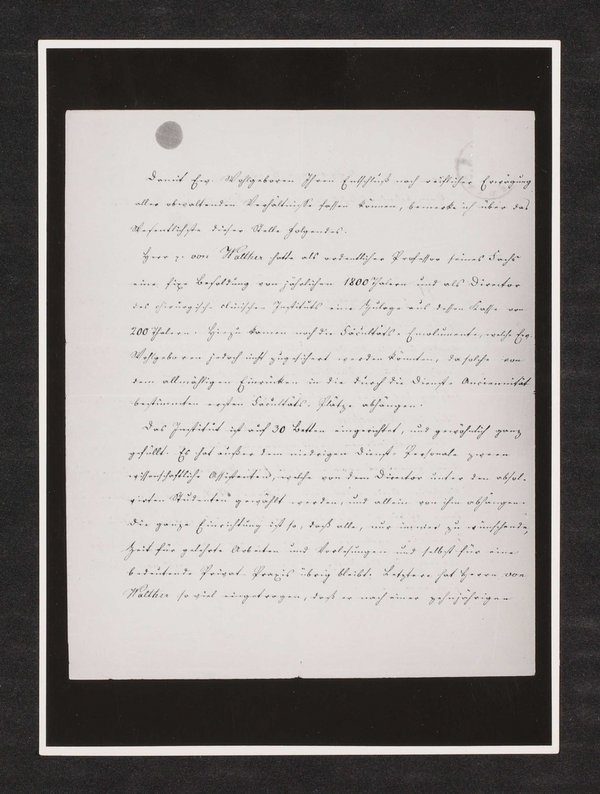 Damit Ew. Wohlgeboren Ihren Entschluß nach reiflicher Erwägung
aller obwaltenden Verhältnisse fassen können, bemerke ich über das
Wesentlichste dieser Stelle folgendes.
Herr p. von Walther hatte als ordentlicher Professor seines Fachs
eine fixe Besoldung von jährlichen 1800 Thalern und als Director
des chirurgisch clinischen Instituts eine Zulage aus dessen Kasse von
200 Thalern. Hiezu kamen noch die Facultäts-Emolumente, welche Ew.
Wohlgeboren jedoch nicht zugesichert werden könnten, da solche von
dem allmäligen Einrücken in die durch die Dienst-Anciennität
bestimmten ersten Facultäts-Plätze abhängen.
Das Institut ist auf 30 Betten eingerichtet, und gewöhnlich ganz
gefüllt. Es hat außer dem niedrigen Dienst-Personale zween
wissenschaftliche Assistenten, welche von dem Director unter den absol-
virten Studenten gewählt werden, und allein von ihm abhängen.
Die ganze Einrichtung ist so, daß alle, nur immer zu wünschende,
Zeit für gelehrte Arbeiten und Vorlesungen und selbst für eine
bedeutende Privat-Praxis übrig bleibt. Letztere hat Herrn von
Walther so viel eingetragen, daß er nach einer zehnjährigen